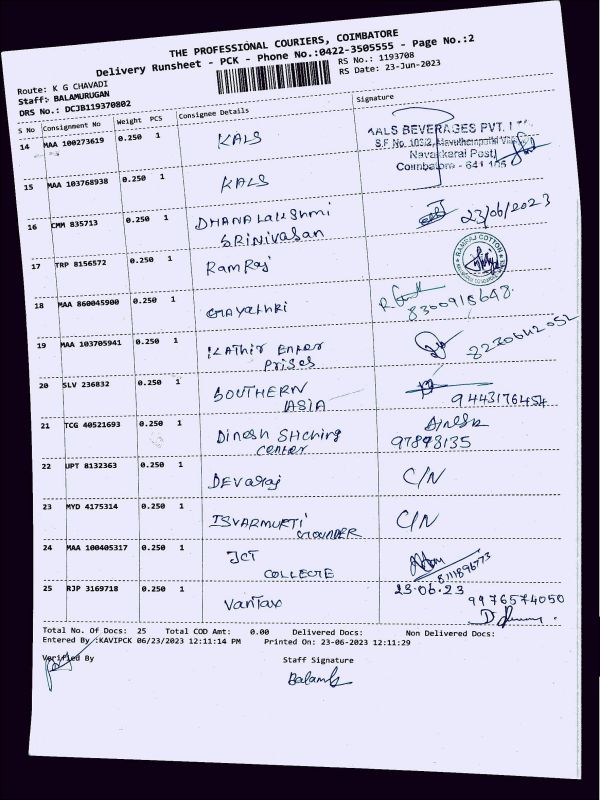 THE PROFESSIONAL COURIERS, COIMBATORE
Delivery Runsheet - PCK - Phone No.:0422-3505555 - Page No.:2
Route: K G CHAVADI
RS No.: 1193708
Staff: BALAMURUGAN
RS Date: 23-Jun-2023
DRS No.: DCJB119370802
S No Consignment No Weight PCS Consignee Details Signature
14 MAA 100273619 0.250 1 KALS
KALS BEVERAGES PVT.
S.F. No.
Navakkarai Post)
Coimbatore - 641 105
15 MAA 103768938 0.250 1 KALS
16 CMM 835713 0.250 1 DHANALAKSHMI 23/06/2023
SRINIVASAN
17 TRP 8156572 0.250 1 RAMRAJ
RAMRAJ COTTON
18 MAA 860045900 0.250 1 GAYATHRI
8300918648
19 MAA 103705941 0.250 1 KATHIR ENTER
PRISES
20 SLV 236832 0.250 1 SOUTHERN
ASIA
9443176454
21 TCG 40521693 0.250 1 Dinesh Stiching Dinesh
center 97898135
22 UPT 8132363 0.250 1 DEVARAJ C/N
23 MYD 4175314 0.250 1 ISVARMURTI C/N
GOUNDER
24 MAA 100405317 0.250 1 JCT
COLLECTE 8111896773
25 RJP 3169718 0.250 1 Vantax 23.06.23
9976574050
Total No. Of Docs: 25 Total COD Amt: 0.00 Delivered Docs: Non Delivered Docs:
Entered By :KAVIPCK 06/23/2023 12:11:14 PM Printed On: 23-06-2023 12:11:29
Verified By
Staff Signature